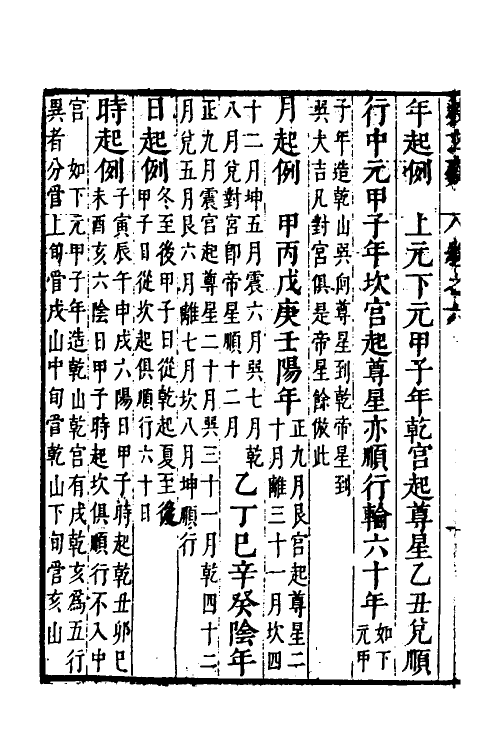 年起例　上元下元甲子年乾宮起尊星乙丑兌順
行中元甲子年坎宮起尊星亦順行輪六十年如下元甲
子年造乾山巽向尊星到乾帝星到
巽大吉凡對宮俱是帝星餘倣此
月起例　甲丙戊庚壬陽年正九月艮宮起尊星二
十月離三十一月坎四
十二月坤五月震六月巽七月乾
八月兌對宮即帝星順十二月　乙丁巳辛癸陰年
正九月震宮起尊星二十月巽三十一月乾四十二
月兌五月艮六月離七月坎八月坤順行
日起例冬至後甲子日從乾起夏至後
甲子日從坎起俱順行六十日
時起例子寅辰午申戌六陽日甲子時起乾丑卯巳
未酉亥六陰日甲子時起坎俱順行不入中
宮　如下元甲子年造乾山乾宮有戌乾亥爲五行
異者分管上旬管戌山中旬管乾山下旬管亥山